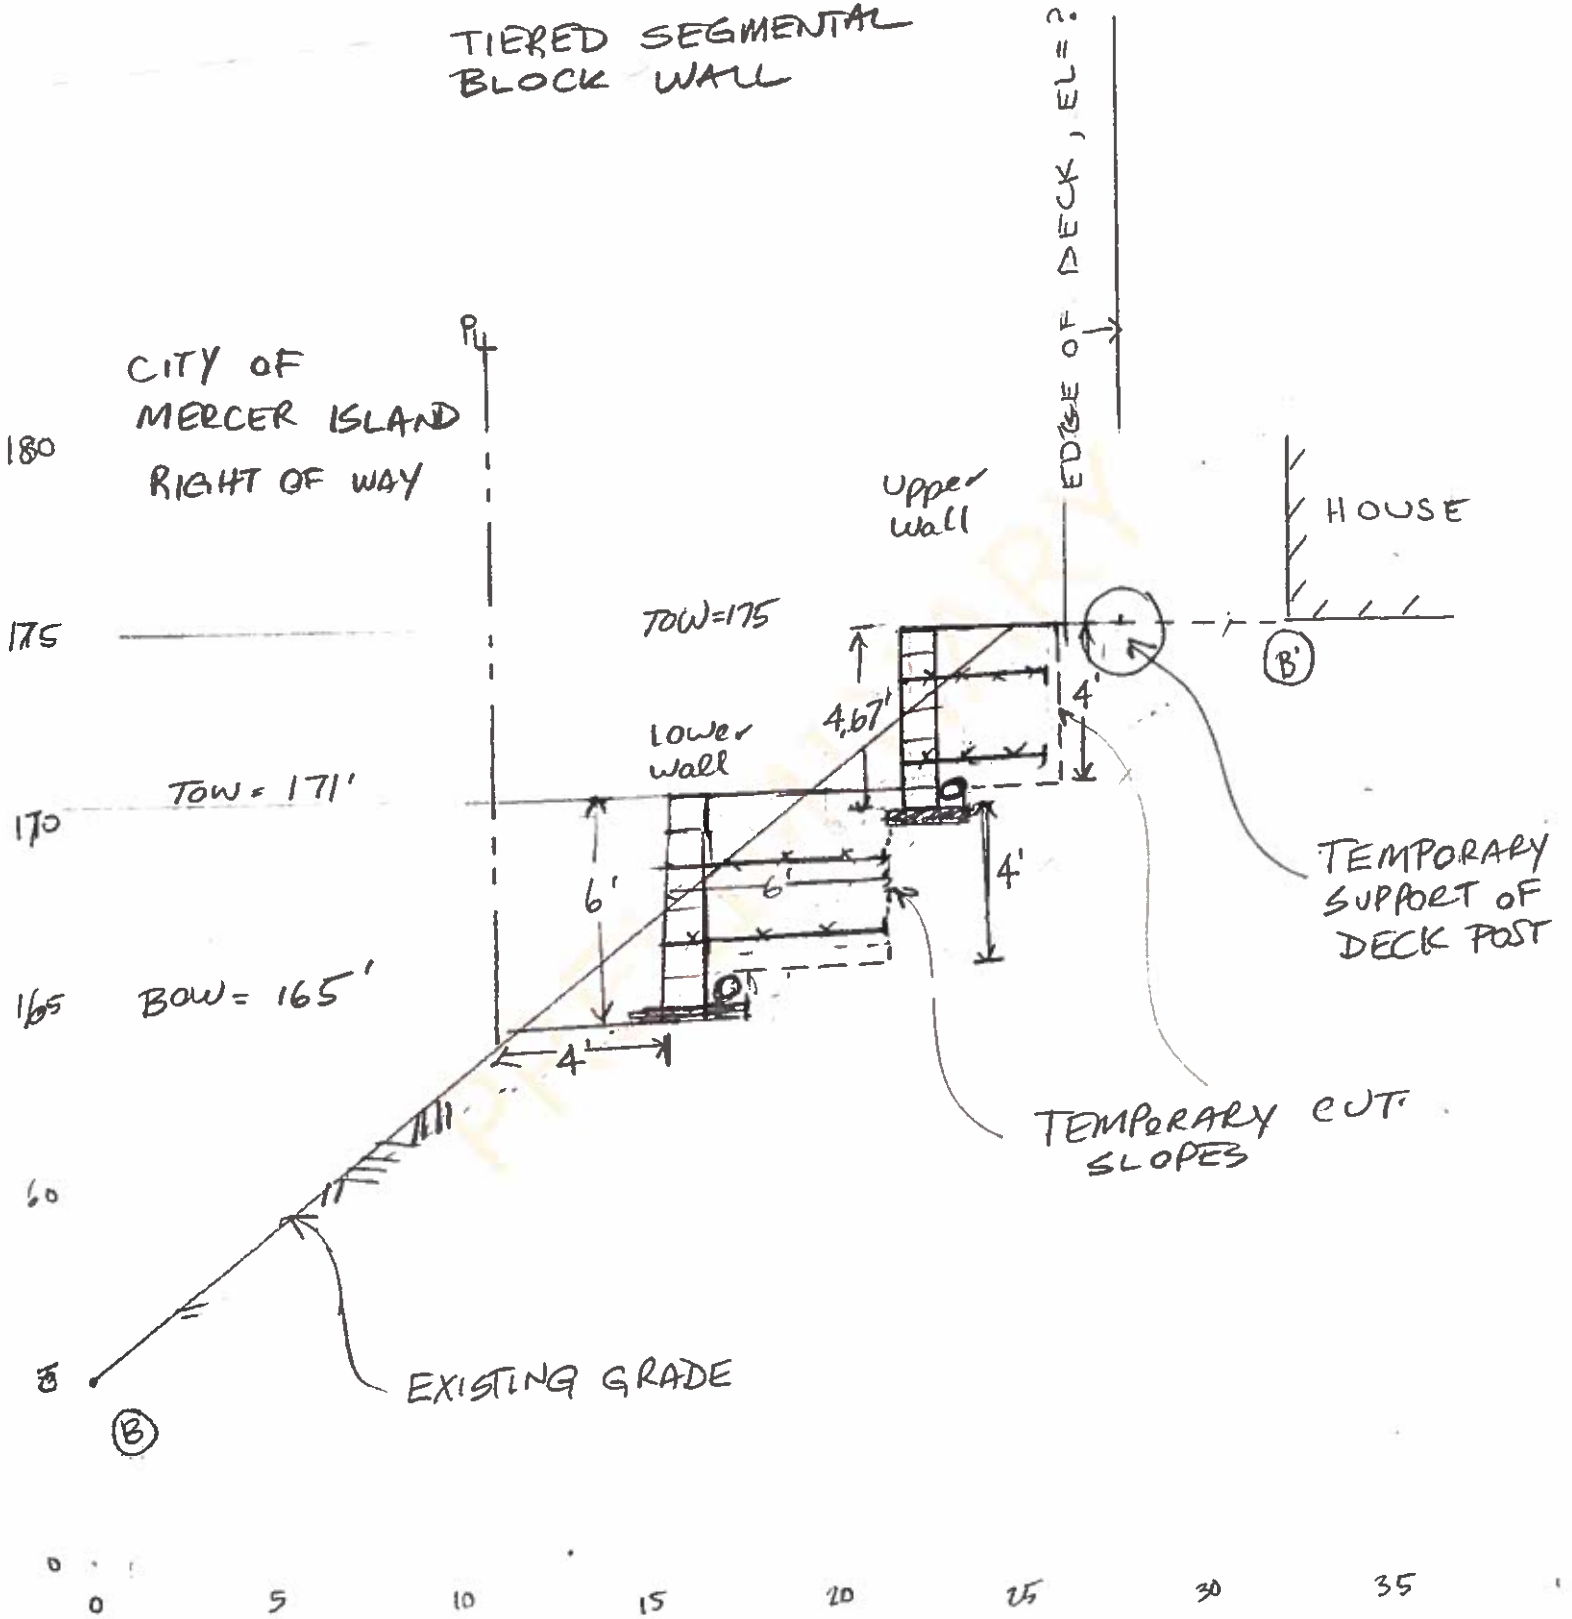 TIERED SEGMENTAL
BLOCK WALL
EDGE OF DECK, EL=?
PL
CITY OF
MERCER ISLAND
RIGHT OF WAY
180
Upper
Wall
HOUSE
175
TOW=175
B'
4'
4.67'
Lower
Wall
TOW = 171'
170
6'
6'
4'
TEMPORARY
SUPPORT OF
DECK POST
165
BOW = 165'
4'
TEMPORARY CUT
SLOPES
60
EXISTING GRADE
B
0
0 5 10 15 20 25 30 35
PRELIMINARY